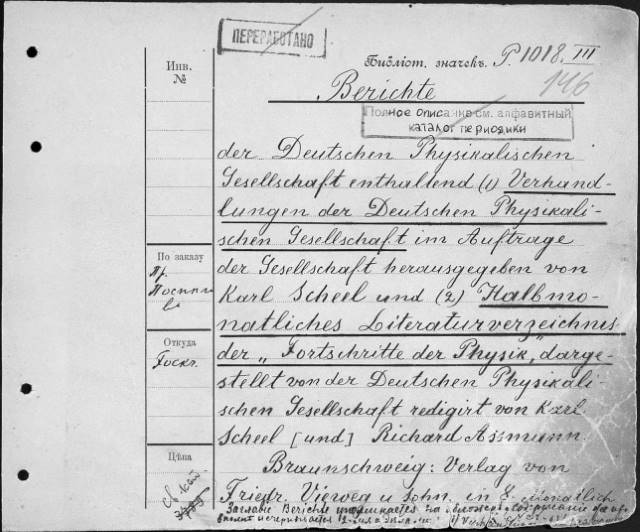 ПЕРЕРАБОТАНО
Библіот. значекъ. P. 1018. III
146
Инв.
№
Berichte
Полное описание см. алфавитный
каталог периодики
der Deutschen Physikalischen
Gesellschaft enthaltend (1) Verhand-
lungen der Deutschen Physikali-
schen Gesellschaft im Auftrage
По заказу
der Gesellschaft herausgegeben von
Karl Scheel und (2) Halbmo-
natliches Literaturverzeichnis
Откуда
der „Fortschritte der Physik," darge-
stellt von der Deutschen Physikali-
schen Gesellschaft redigirt von Karl
Scheel [und] Richard Assmann
Цѣна
Braunschweig: Verlag von
Friedr. Vieweg u. Sohn. in
Заглавие Berichte